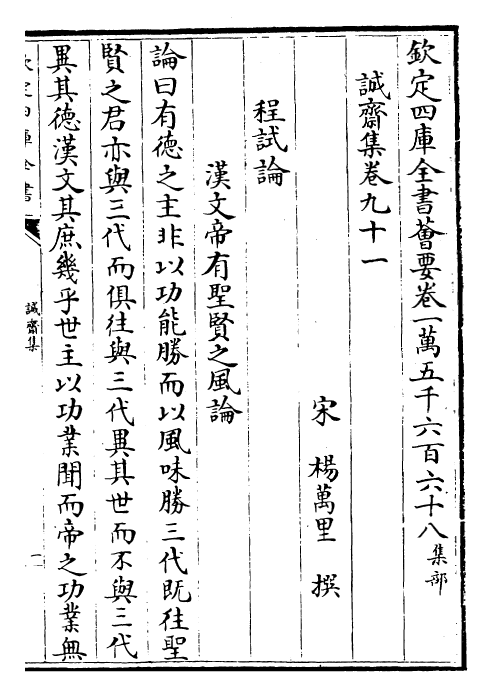 欽定四庫全書薈要卷一萬五千六百六十八集部
誠齋集卷九十一
宋 楊萬里 撰
程試論
漢文帝有聖賢之風論
論曰有德之主非以功能勝而以風味勝三代既往聖
賢之君亦與三代而俱往與三代異其世而不與三代
異其德漢文其庶幾乎世主以功業聞而帝之功業無
欽定四庫全書
誠齋集
一